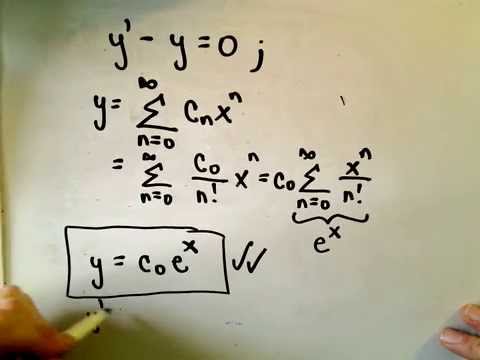 y' - y = 0 ;
y = ∑_{n=0}^{∞} c_n x^n
= ∑_{n=0}^{∞} \frac{c_0}{n!} x^n = c_0 ∑_{n=0}^{∞} \frac{x^n}{n!}
e^x
y = c_0 e^x ✓✓
y'